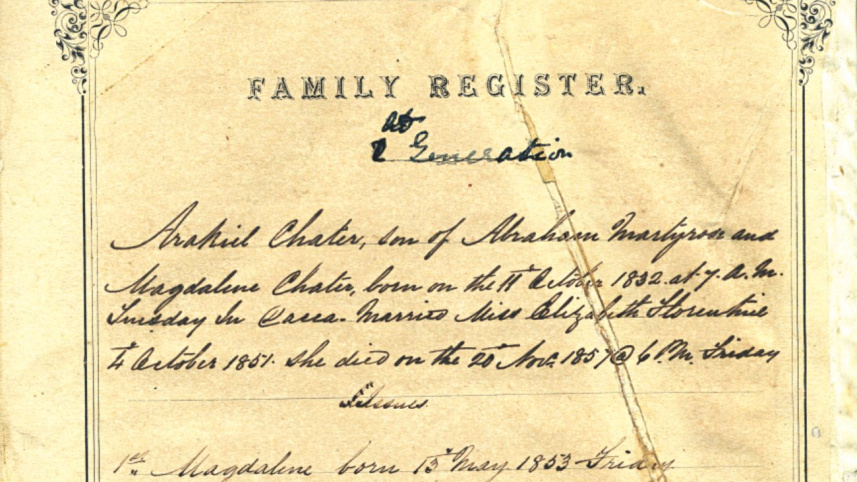 FAMILY REGISTER.
at
2 Generation
Arakiel Chater, son of Abraham Martyrose and
Magdalene Chater, born on the 11th October 1832 at 7. A.M.
Tuesday In Dacca. Married Miss Elizabeth Florentine
4th October 1851. She died on the 20th Nov. 1857 @ 6 P.M. Friday
Issues
1st Magdalene born 13th May 1853 Friday